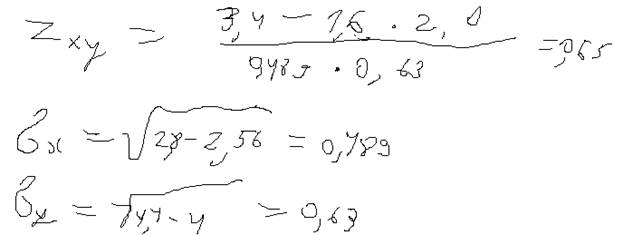 Z_xy = (3,4 - 1,6 · 2,0) / (0,489 · 0,63) = 0,65
σ_x = √(2,8 - 2,56) = 0,489
σ_y = √(4,4 - 4) = 0,63